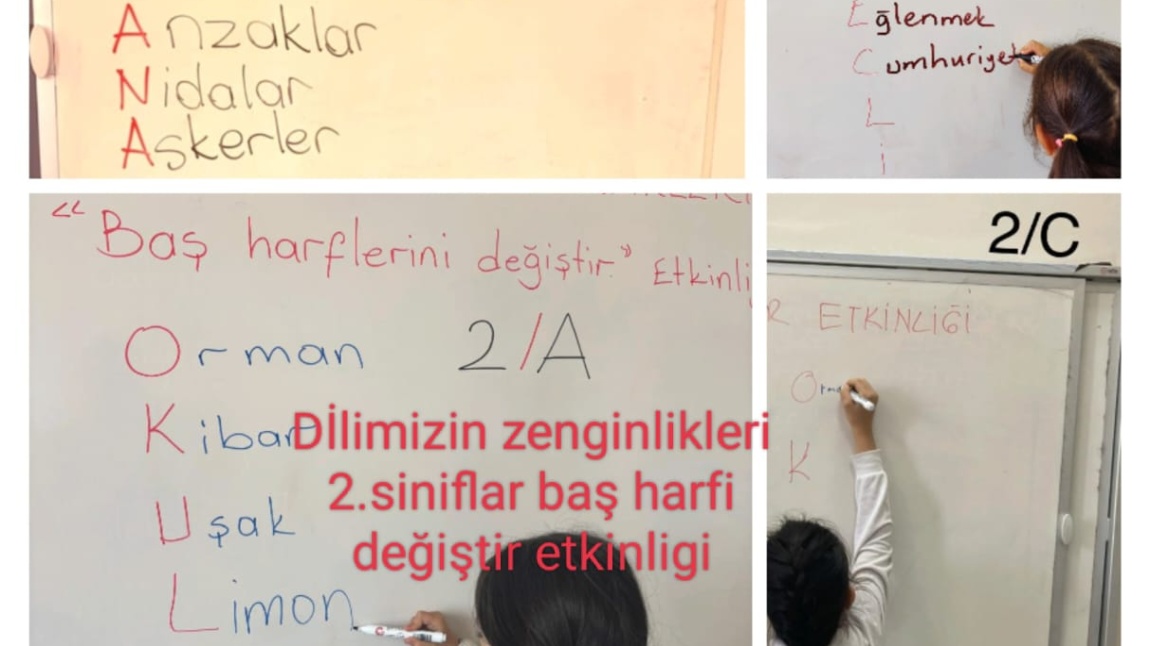 Anzaklar
Nidalar
Askerler
Eğlenmek
Cumhuriyet
L
i
"Baş harflerini değiştir." Etkinli
Orman 2/A
Kibar
Uşak
Limon
Dİlimizin zenginlikleri
2.siniflar baş harfi
değiştir etkinligi
2/C
R ETKİNLİĞİ
Orma
K